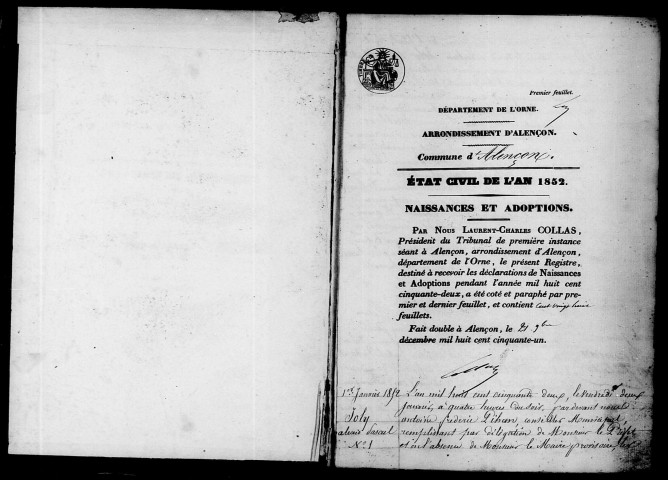 Premier feuillet.
DÉPARTEMENT DE L'ORNE.
ARRONDISSEMENT D'ALENÇON.
Commune d'Alençon.
ÉTAT CIVIL DE L'AN 1852.
NAISSANCES ET ADOPTIONS.
PAR NOUS LAURENT-CHARLES COLLAS,
Président du Tribunal de première instance
séant à Alençon, arrondissement d'Alençon,
département de l'Orne, le présent Registre,
destiné à recevoir les déclarations de Naissances
et Adoptions pendant l'année mil huit cent
cinquante-deux, a été coté et paraphé par pre-
mier et dernier feuillet, et contient cent vingt
feuillets.
Fait double à Alençon, le 21 9bre
décembre mil huit cent cinquante-un.
1er Janvier 1852
Joly
N° 1
L'an mil huit cent cinquante deux, le deux
Janvier, à quatre heures du soir, par devant nous
antoine frederic conseiller Municipal,
remplissant par délégation de Monsieur le
et en l'absence de Monsieur le Maire provisoire les